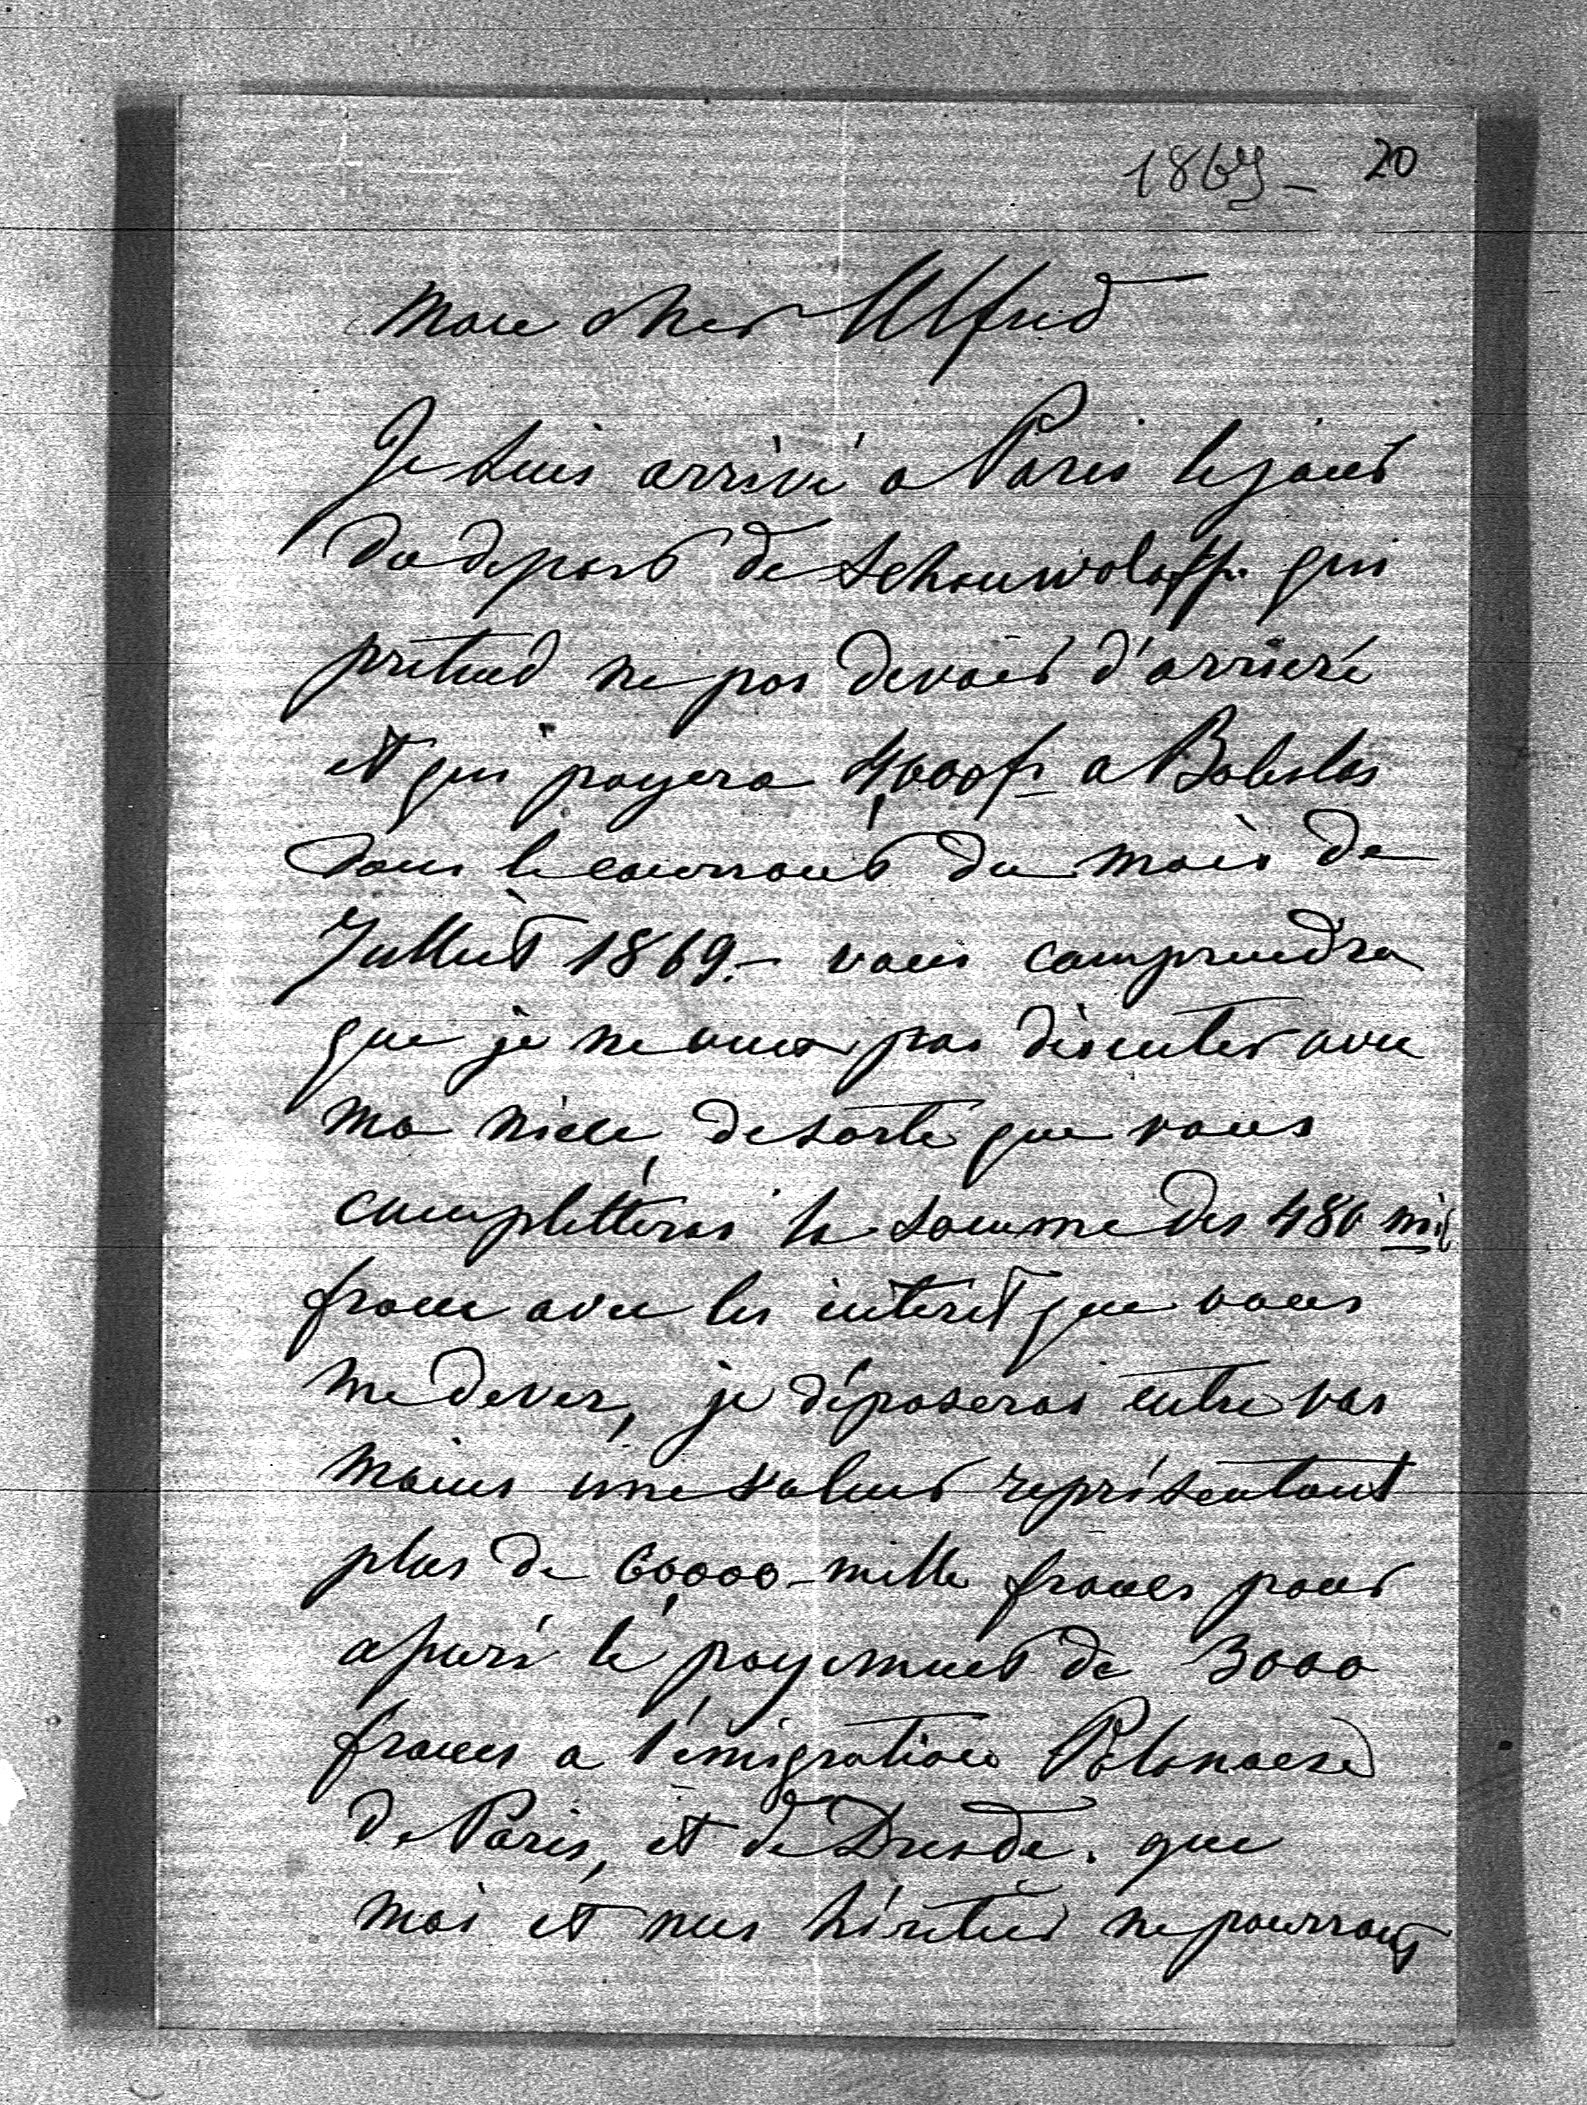 1869 — 20
Mon cher Alfred
Je suis arrivé a Paris le jour
du depart de Schouwaloff. qui
pretend ne pas devoir d'arrieré
et qui payera 4000 fr a Boleslas
dans le courrant du mois de
Julliet 1869. — vous comprendra
que je ne veux pas discuter avec
ma niece, de sorte que vous
completteras la somme des 480 mil
franc avec les interet que vous
me devez, je déposerai entre vos
mains une valeur représentant
plus de 60000 mille francs pour
assuré le payement de 3000
francs a l'émigration Polonaise
de Paris, et de Dresde. que
moi et mes héritier ne pourront